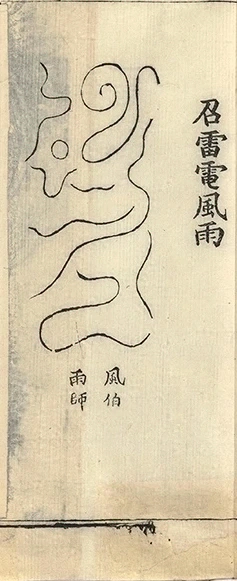 召雷電風雨
風伯
雨師